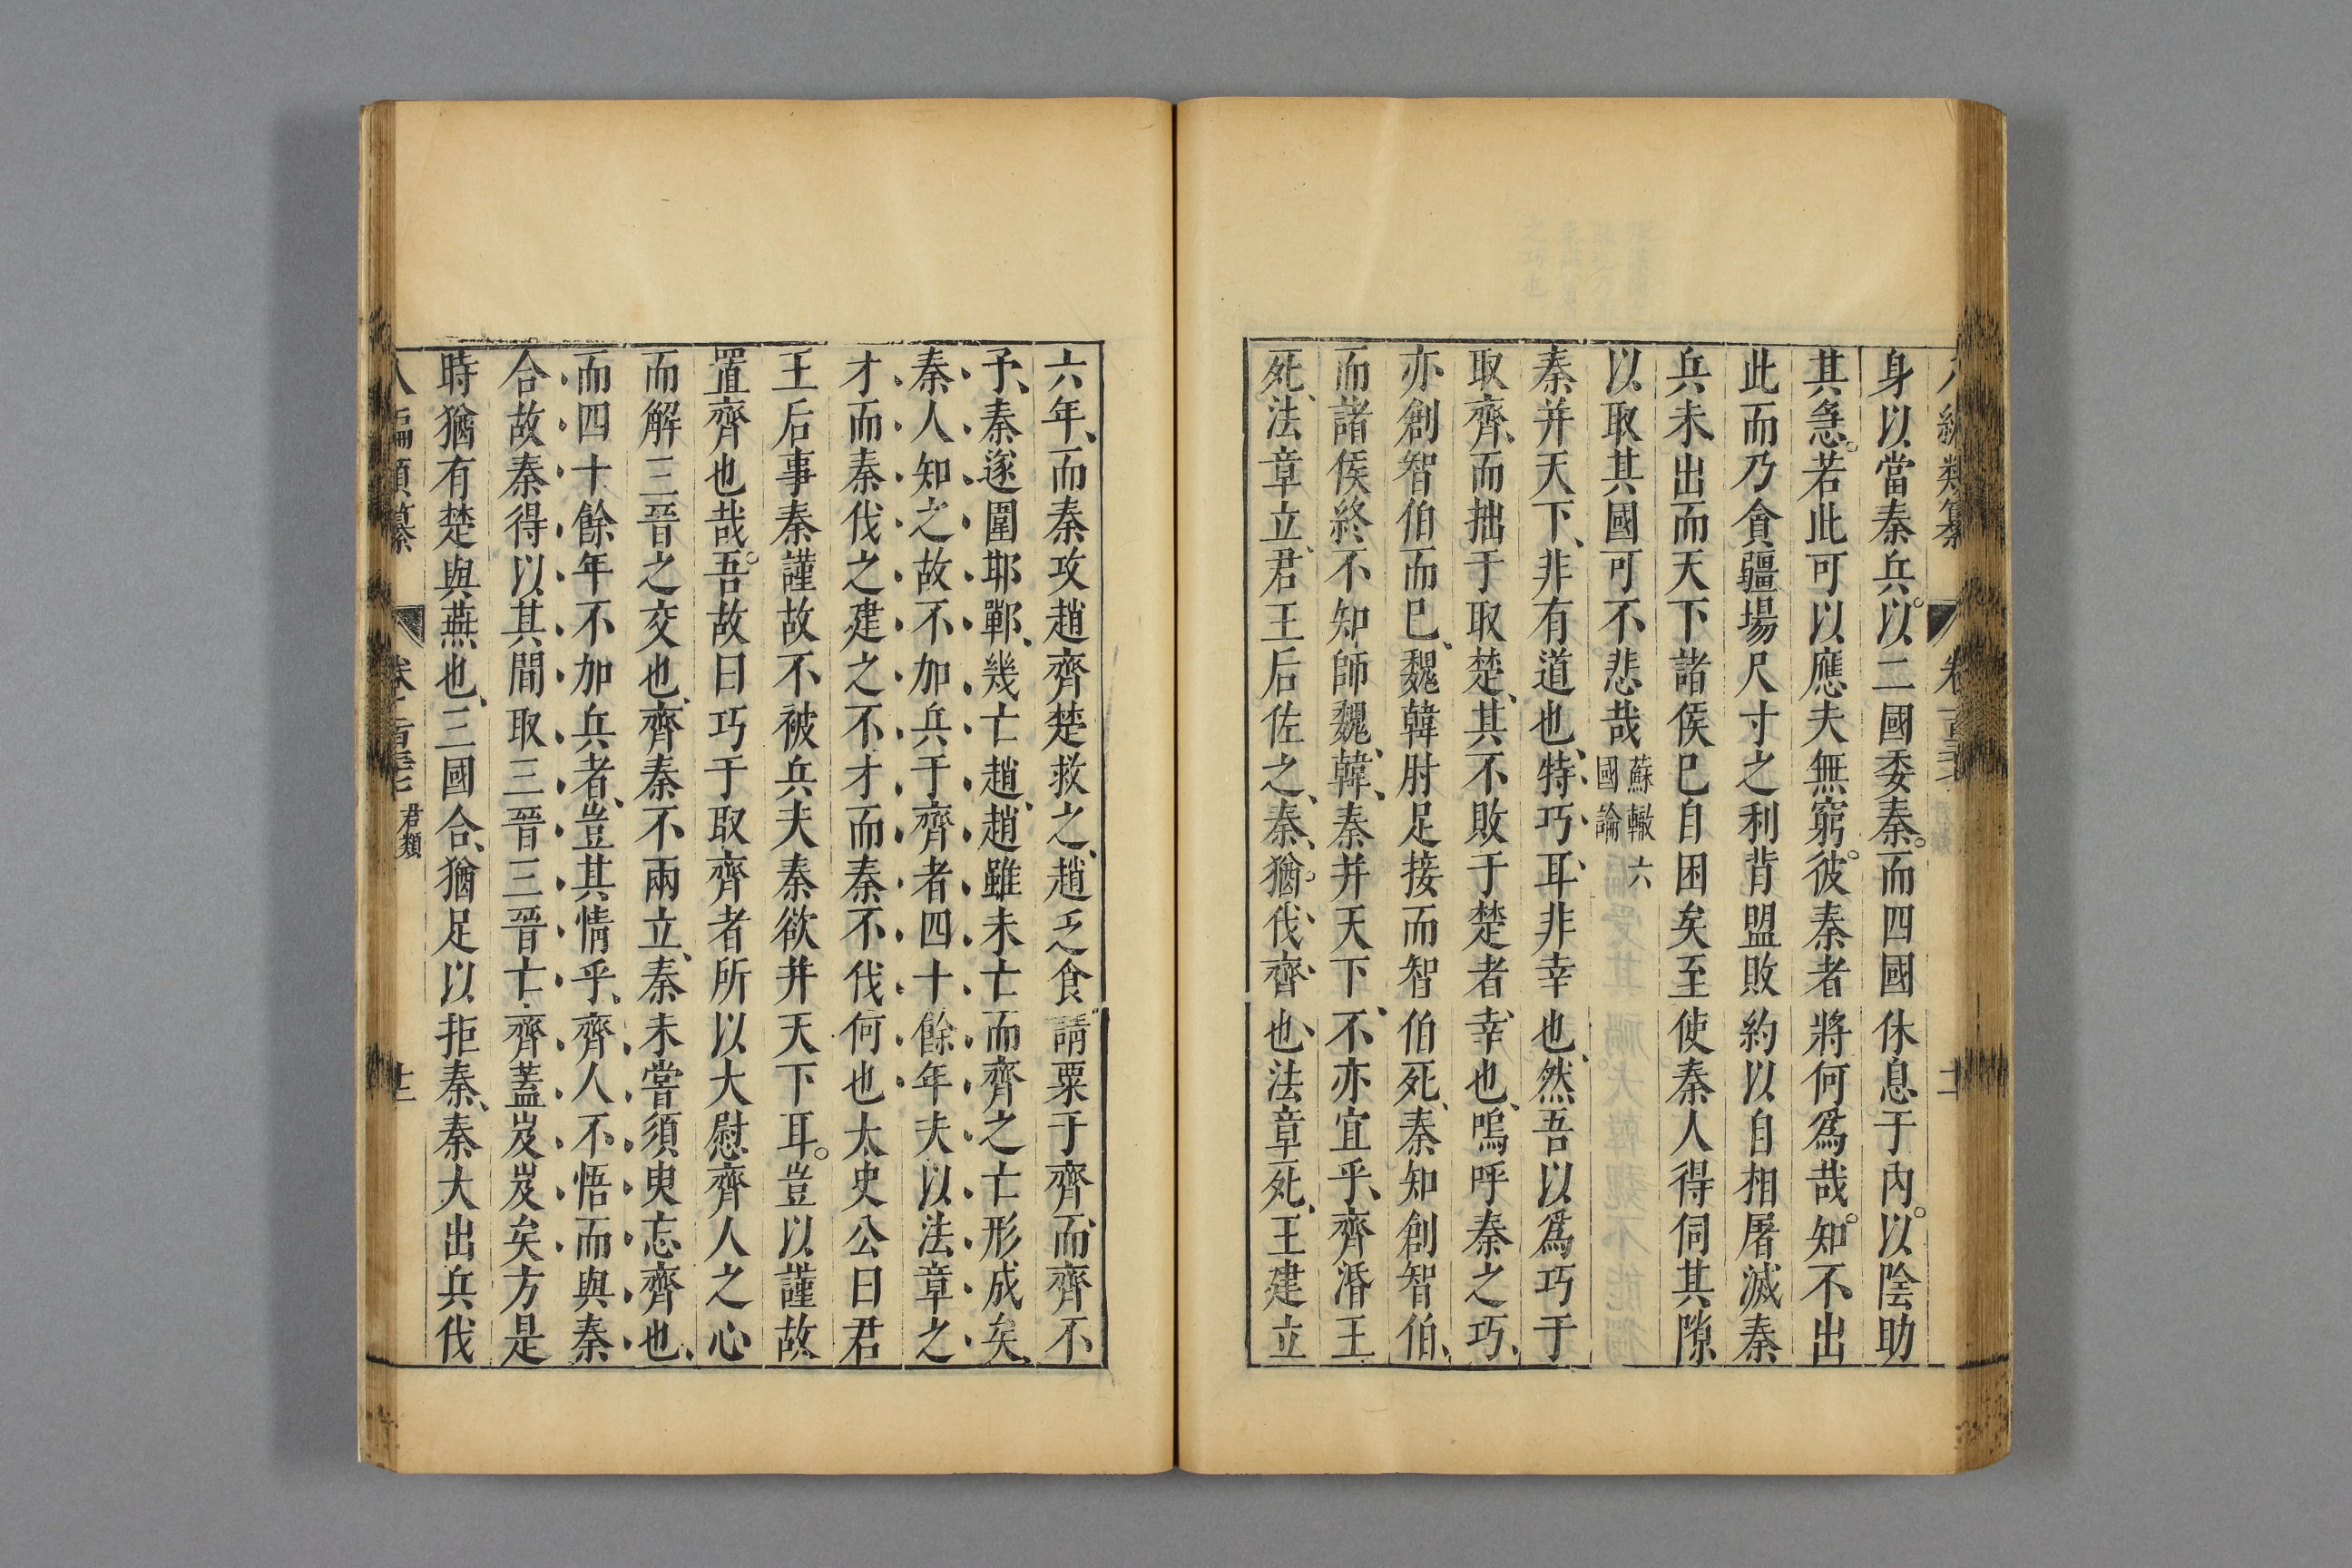 身以當秦兵以二國委秦而四國休息于內以陰助
其急若此可以應夫無窮彼秦者將何爲哉知不出
此而乃貪疆場尺寸之利背盟敗約以自相屠滅秦
兵未出而天下諸侯已自困矣至使秦人得伺其隙
以取其國可不悲哉
蘇轍六
國論
秦并天下、非有道也、特巧耳、非幸也、然吾以爲巧于
取齊、而拙于取楚、其不敗于楚者、幸也、嗚呼秦之巧、
亦創智伯而已、魏韓肘足接而智伯死、秦知創智伯、
而諸侯終不知師魏韓、秦并天下、不亦宜乎、齊湣王
死、法章立、君王后佐之、秦猶伐齊也、法章死、王建立
六年、而秦攻趙齊楚救之、趙乏食請粟于齊、而齊不
予、秦遂圍邯鄲、幾亡趙、趙雖未亡而齊之亡形成矣、
秦人知之故不加兵于齊者四十餘年夫以法章之
才而秦伐之建之不才而秦不伐何也太史公曰君
王后事秦謹故不被兵夫秦欲并天下耳。豈以謹故
置齊也哉。吾故曰巧于取齊者所以大慰齊人之心
而解三晉之交也、齊秦不兩立、秦未嘗須臾忘齊也、
而四十餘年不加兵者、豈其情乎、齊人不悟而與秦
合故秦得以其間取三晉三晉亡齊蓋岌岌矣方是
時猶有楚與燕也、三國合、猶足以拒秦、秦大出兵伐
君類